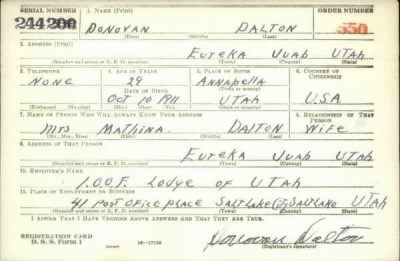 SERIAL NUMBER 1. NAME (Print) ORDER NUMBER
244200 DONOVAN DALTON 550
(First) (Middle) (Last)
2. ADDRESS (Print)
EUREKA JUAB UTAH
(Number and street or R. F. D. number) (Town) (County) (State)
3. TELEPHONE 4. AGE IN YEARS 5. PLACE OF BIRTH 6. COUNTRY OF CITIZENSHIP
NONE 29 ANNABELLA
DATE OF BIRTH (Town or county)
OCT 10 1911 UTAH USA
(Exchange) (Number) (Mo.) (Day) (Yr.) (State or country)
7. NAME OF PERSON WHO WILL ALWAYS KNOW YOUR ADDRESS 8. RELATIONSHIP OF THAT PERSON
Mrs Mathina DALTON Wife
(Mr., Mrs., Miss) (First) (Middle) (Last)
9. ADDRESS OF THAT PERSON
EUREKA JUAB UTAH
(Number and street or R. F. D. number) (Town) (County) (State)
10. EMPLOYER'S NAME
I.O.O.F. Lodge OF UTAH
11. PLACE OF EMPLOYMENT OR BUSINESS
41 POST OFICE PLACE SALT LAKE City SALT LAKE UTAH
(Number and street or R. F. D. number) (Town) (County) (State)
I AFFIRM THAT I HAVE VERIFIED ABOVE ANSWERS AND THAT THEY ARE TRUE.
REGISTRATION CARD
D. S. S. Form 1 16-17105 Donovan Dalton
(Registrant's signature)